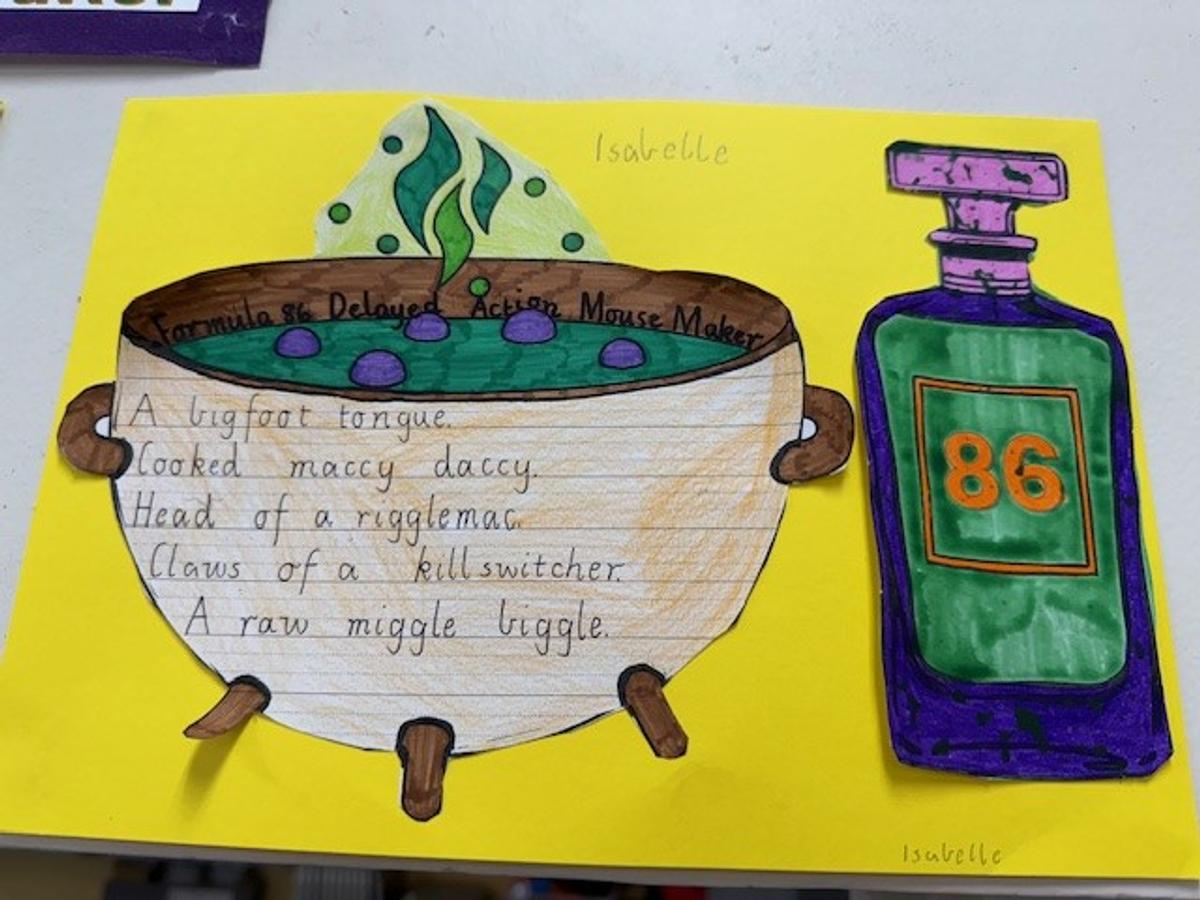 Isabelle
Formula 86 Delayed Action Mouse Maker
A bigfoot tongue.
Cooked maccy daccy.
Head of a rigglemac.
Claws of a killswitcher.
A raw miggle biggle.
86
Isabelle